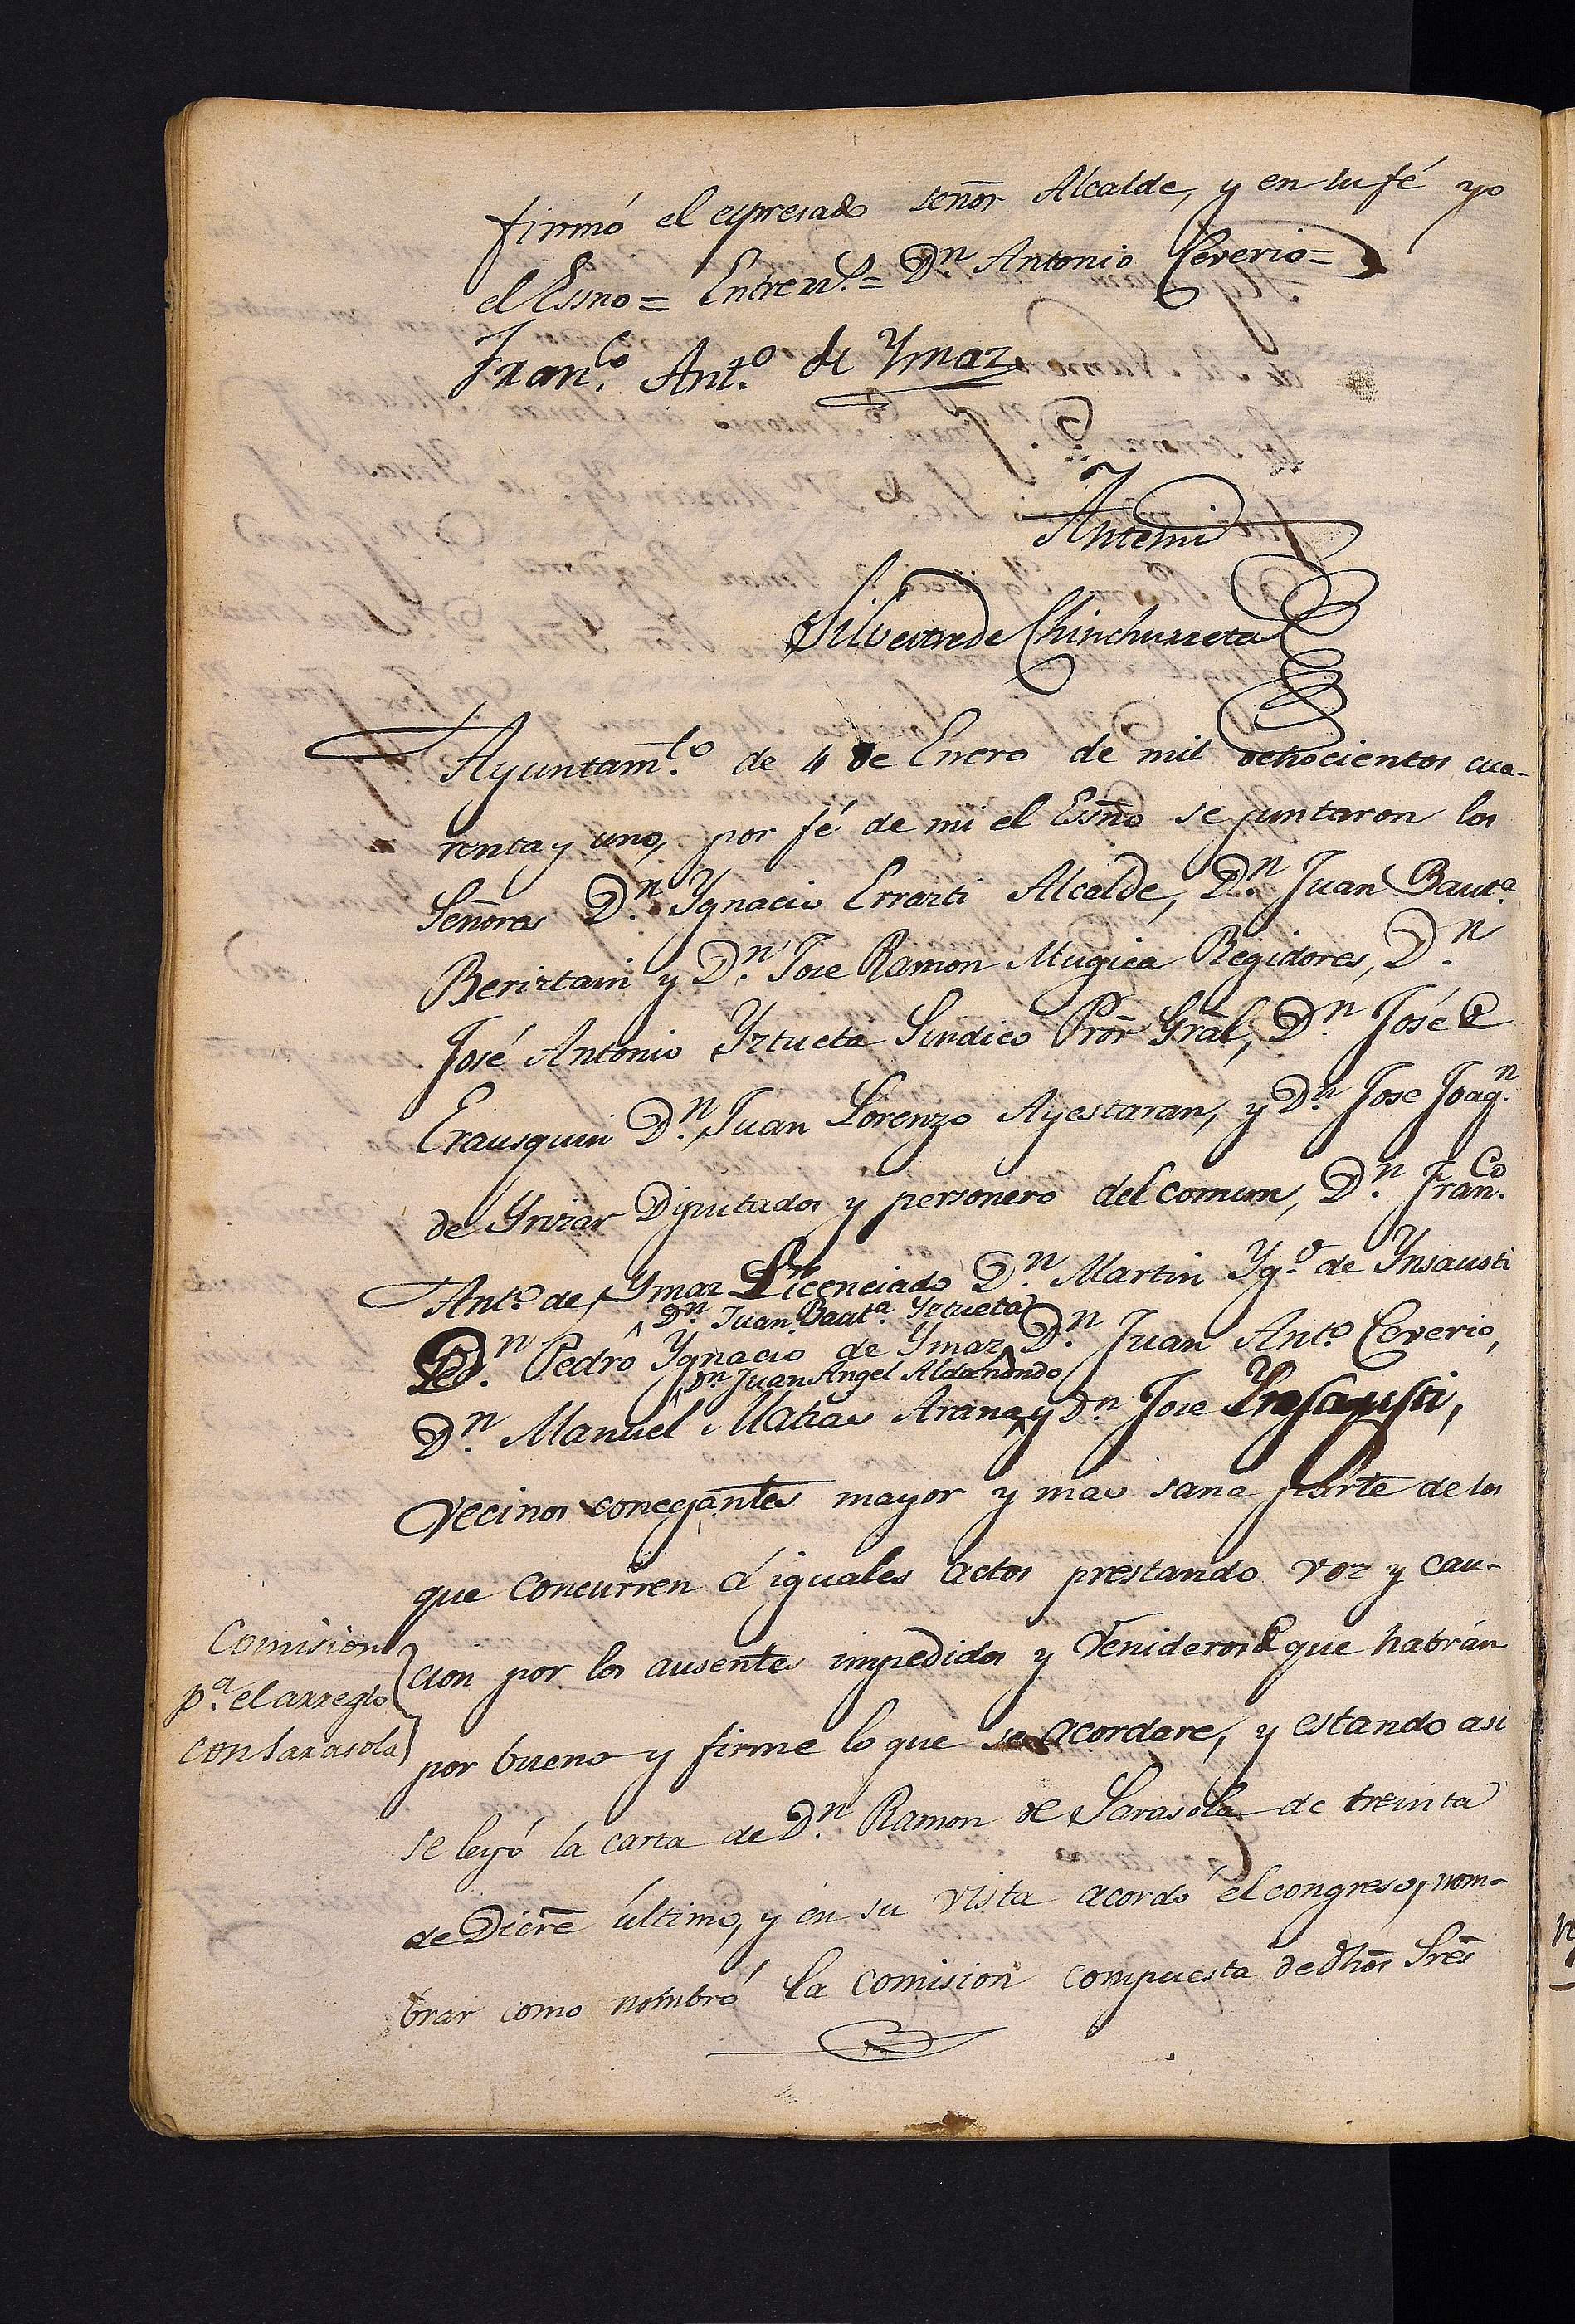 firmó el espresado señor Alcalde, y en su fé yo
el Essno = Entre rs. = Dn. Antonio Ceverio =
Franco. Anto. de Ymaz
Antemi
Silvestre de Chinchurreta
Ayuntamto. de 4 de Enero de mil ochocientos cua-
renta y uno, por fé de mi el Essño se juntaron los
Señores Dn. Ygnacio Errazti Alcalde, Dn. Juan Bauta.
Beriztain y Dn. Jose Ramon Mugica Regidores, Dn.
José Antonio Yztueta Sindico Prõr Grãl, Dn. José
Erausquin Dn. Juan Lorenzo Ayestaran, y Dn. Jose Joaqn.
de Yrizar Diputados y personero del comun, Dn. Franco.
Anto. de Ymaz Licenciado Dn. Martin Ygo. de Ynsausti
Dn. Juan Bauta. Yztueta
Dn. Pedro Ygnacio de Ymaz, Dn. Juan Anto. Ceverio,
Dn. Juan Angel Aldanondo
Dn. Manuel Matias Arana, y Dn. Jose Ynsausti,
vecinos concegantes mayor y mas sana parte de los
que concurren á iguales actos prestando voz y cau-
cion por los ausentes impedidos y venideros que habrán
por bueno y firme lo que se acordare, y estando asi
se leyó la carta de Dn. Ramon de Sarasola de treinta
de Dicrẽ último, y en su vista acordó el congreso, nom-
brar como nombró la comision compuesta de dhõs Srẽs
Comision
pa. el arreglo
con Sarasola